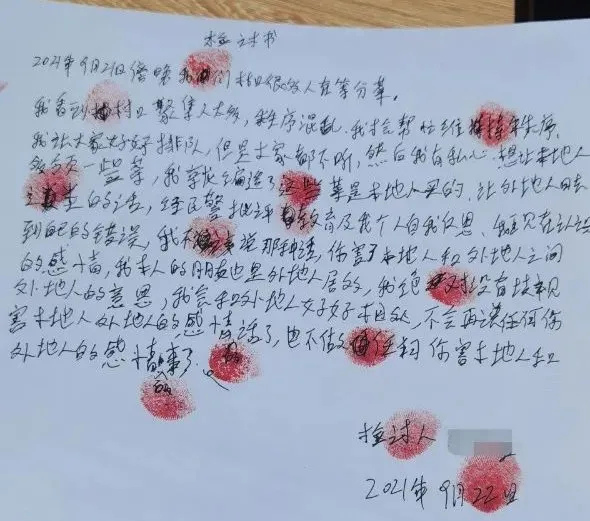 检讨书
2021年9月21日傍晚我们村口很多人在等分菜。
我看到村口聚集人太多，秩序混乱，我就帮忙维持秩序，
我让大家好好排队，但是大家都不听，然后我有私心，想让本地人
多分一些菜，我就编造了这些菜是本地人买的，让外地人回去
的话，经民警批评教育及我个人自我反思，我现在认识
到自己的错误，我不该说那种话，伤害了本地人和外地人之间
的感情，我本人的朋友也是外地人居多，我绝对没有歧视
外地人的意思，我会和外地人好好相处，不会再说任何伤
害本地人外地人的感情的话了，也不做任何伤害本地人和
外地人的感情的事了。
检讨人
2021年9月22日